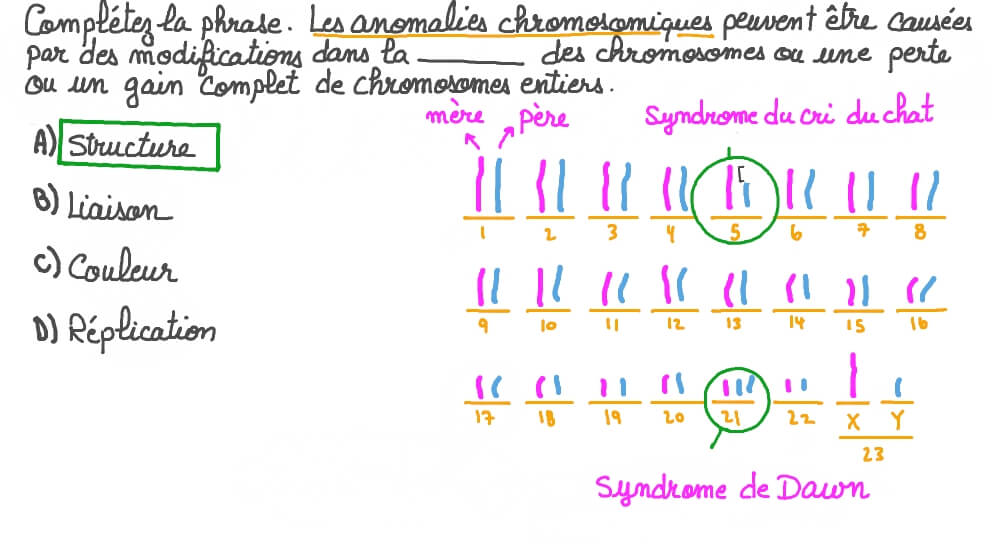 Complétez la phrase. Les anomalies chromosomiques peuvent être causées
par des modifications dans la ________ des chromosomes ou une perte
ou un gain complet de chromosomes entiers.
mère Père Syndrome du cri du chat
A) Structure
B) Liaison
C) Couleur
D) Réplication
1 2 3 4 5 6 7 8
9 10 11 12 13 14 15 16
17 18 19 20 21 22 X Y
23
Syndrome de Dawn